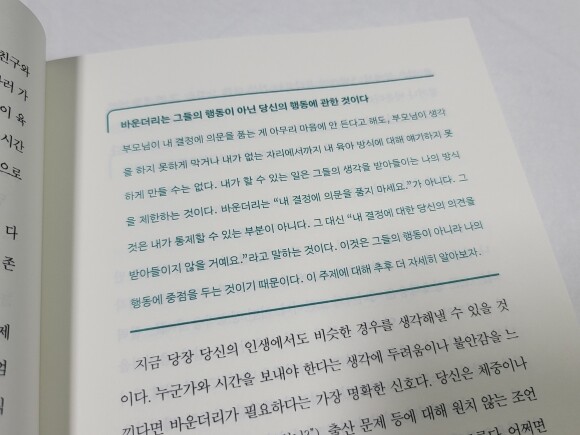 친구와
가
이 육
시간
으로
다
존
제
바운더리는 그들의 행동이 아닌 당신의 행동에 관한 것이다
부모님이 내 결정에 의문을 품는 게 아무리 마음에 안 든다고 해도, 부모님이 생각
을 하지 못하게 막거나 내가 없는 자리에서까지 내 육아 방식에 대해 얘기하지 못
하게 만들 수는 없다. 내가 할 수 있는 일은 그들의 생각을 받아들이는 나의 방식
을 제한하는 것이다. 바운더리는 “내 결정에 의문을 품지 마세요.”가 아니다. 그
것은 내가 통제할 수 있는 부분이 아니다. 그 대신 “내 결정에 대한 당신의 의견을
받아들이지 않을 거예요.”라고 말하는 것이다. 이것은 그들의 행동이 아니라 나의
행동에 중점을 두는 것이기 때문이다. 이 주제에 대해 추후 더 자세히 알아보자.
지금 당장 당신의 인생에서도 비슷한 경우를 생각해낼 수 있을 것
이다. 누군가와 시간을 보내야 한다는 생각에 두려움이나 불안감을 느
낀다면 바운더리가 필요하다는 가장 명확한 신호다. 당신은 체중이나
출산 문제 등에 대해 원치 않는 조언
어쩌면